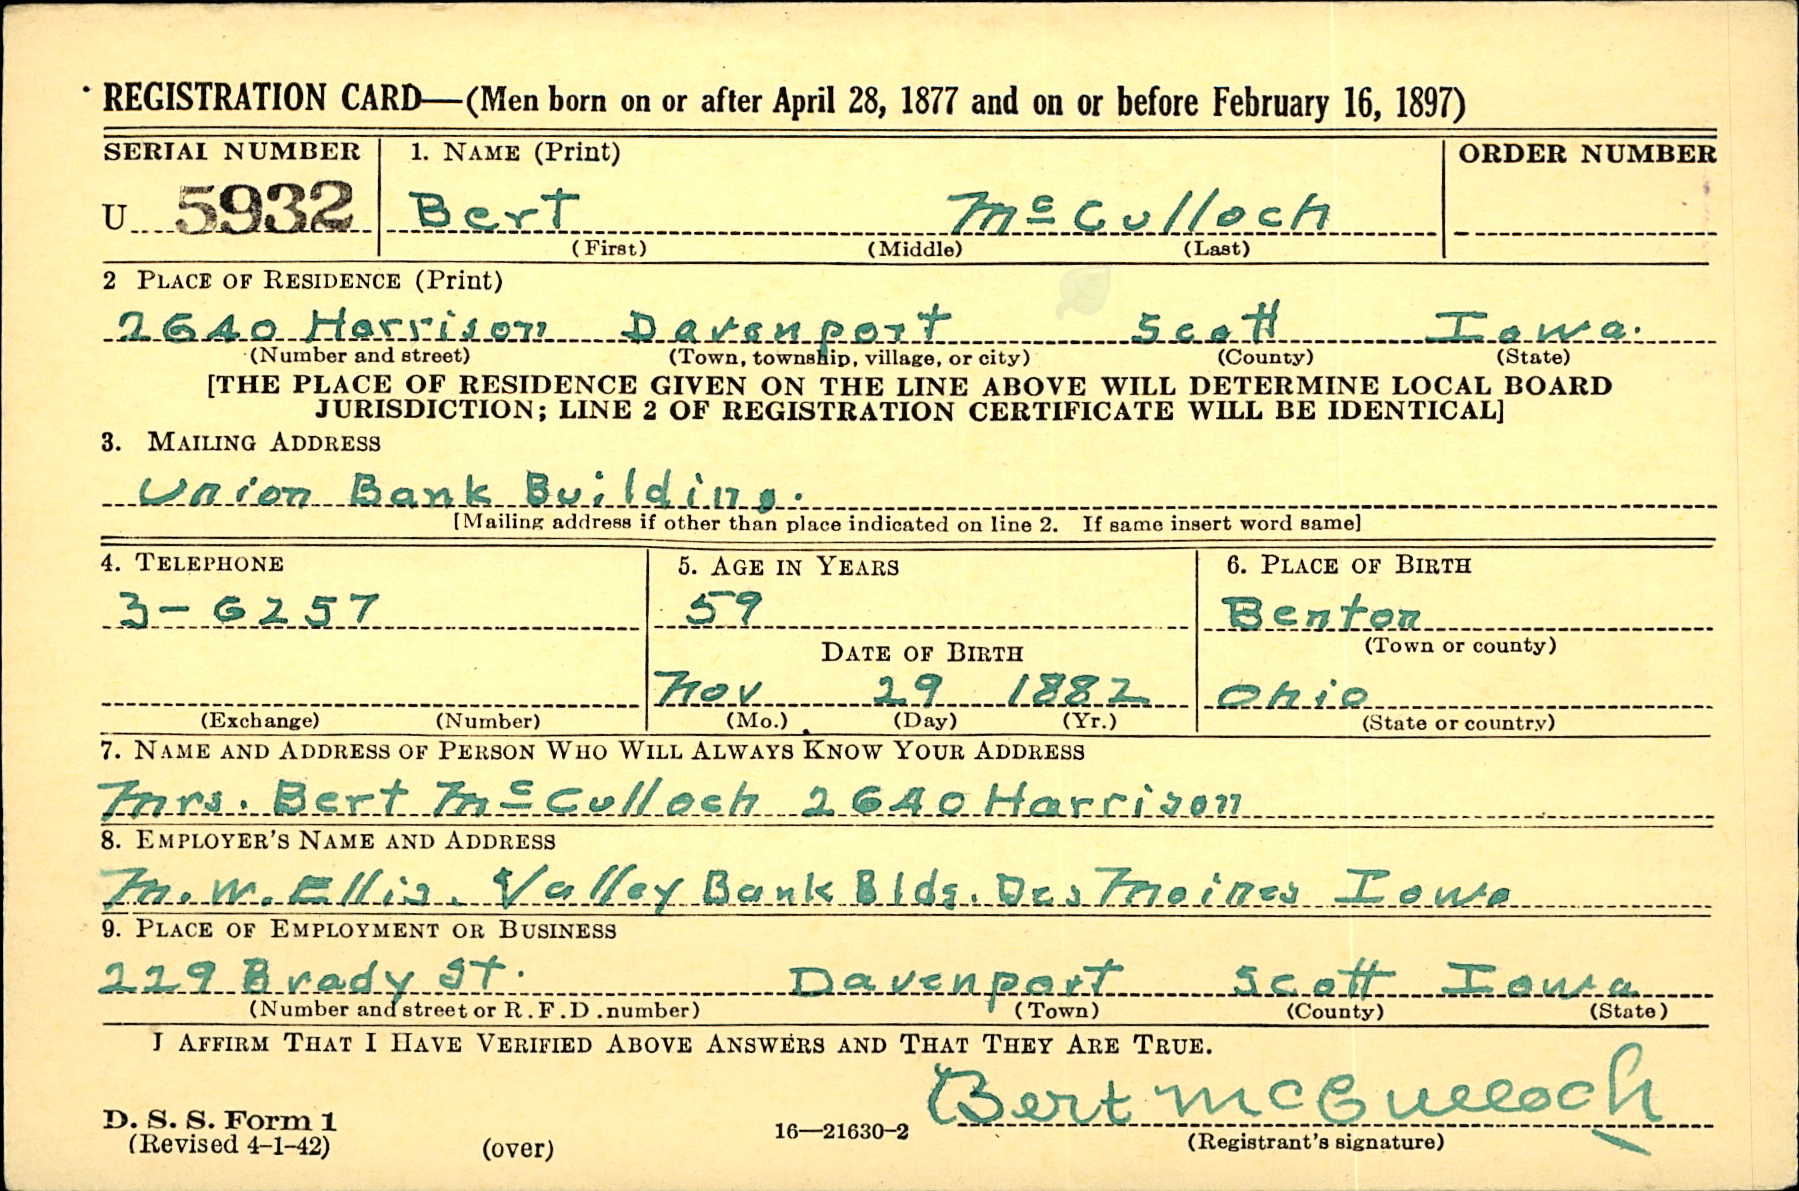 REGISTRATION CARD—(Men born on or after April 28, 1877 and on or before February 16, 1897)
SERIAL NUMBER 1. NAME (Print) ORDER NUMBER
U 5932 Bert McCulloch
(First) (Middle) (Last)
2 PLACE OF RESIDENCE (Print)
2640 Harrison Davenport Scott Iowa.
(Number and street) (Town, township, village, or city) (County) (State)
[THE PLACE OF RESIDENCE GIVEN ON THE LINE ABOVE WILL DETERMINE LOCAL BOARD
JURISDICTION; LINE 2 OF REGISTRATION CERTIFICATE WILL BE IDENTICAL]
3. MAILING ADDRESS
Union Bank Building.
[Mailing address if other than place indicated on line 2. If same insert word same]
4. TELEPHONE 5. AGE IN YEARS 6. PLACE OF BIRTH
3-6257 59 Benton
(Town or county)
DATE OF BIRTH
Nov 29 1882 Ohio
(Exchange) (Number) (Mo.) (Day) (Yr.) (State or country)
7. NAME AND ADDRESS OF PERSON WHO WILL ALWAYS KNOW YOUR ADDRESS
Mrs. Bert McCulloch 2640 Harrison
8. EMPLOYER'S NAME AND ADDRESS
M. W. Ellis. Valley Bank Bldg. Des Moines Iowa
9. PLACE OF EMPLOYMENT OR BUSINESS
229 Brady St. Davenport Scott Iowa
(Number and street or R.F.D. number) (Town) (County) (State)
I AFFIRM THAT I HAVE VERIFIED ABOVE ANSWERS AND THAT THEY ARE TRUE.
Bert McCulloch
D. S. S. Form 1
(Revised 4-1-42) (over) 16—21630-2 (Registrant's signature)